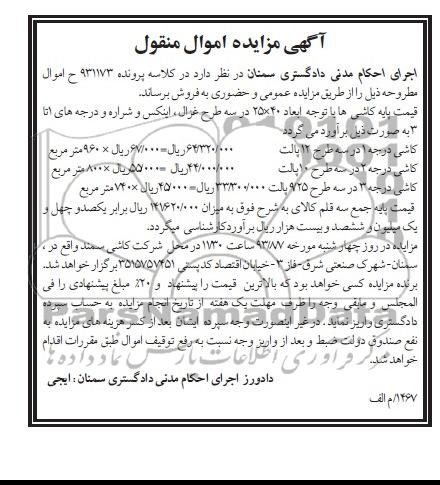 آگهی مزایده اموال منقول
اجرای احکام مدنی دادگستری سمنان در نظر دارد در کلاسه پرونده ۹۳۱۱۷۳ ح اموال
مطروحه ذیل را از طریق مزایده عمومی و حضوری به فروش برساند.
قیمت پایه کاشی ها با توجه ابعاد ۴۰×۲۵ در سه طرح غزال ، اینکس و شراره و درجه های ۱ تا
۳ به صورت ذیل برآورد می گردد
کاشی درجه ۱ در سه طرح ۱۲ پالت ۶۴/۳۲۰/۰۰۰ ریال=۶۷/۰۰۰ ریال × ۹۶۰ متر مربع
کاشی درجه ۲ در سه طرح ۱۰ پالت ۴۴/۰۰۰/۰۰۰ ریال=۵۵/۰۰۰ ریال × ۸۰۰ متر مربع
کاشی درجه ۳ در سه طرح ۹/۲۵ پالت ۳۳/۳۰۰/۰۰۰ ریال=۴۵/۰۰۰ ریال × ۷۴۰ متر مربع
قیمت پایه جمع سه قلم کالای به شرح فوق به میزان ۱۴۱/۶۲۰/۰۰۰ ریال برابر یکصدو چهل و
یک میلیون و ششصد و بیست هزار ریال برآورد کارشناسی میگردد.
مزایده در روز چهار شنبه مورخه ۹۳/۸/۷ ساعت ۱۱/۳۰ در محل شرکت کاشی سمند واقع در ،
سمنان-شهرک صنعتی شرق-فاز ۳-خیابان اقتصاد کد پستی ۳۵۱۵۷۵۷۴۵۱ برگزار خواهد شد.
برنده مزایده کسی خواهد بود که بالا ترین قیمت را پیشنهاد و ۲۰٪ مبلغ پیشنهادی را فی
المجلس و مابقی وجه را ظرف مهلت یک هفته از تاریخ انجام مزایده به حساب سپرده
دادگستری واریز نماید . در غیر اینصورت وجه سپرده ایشان بعد از کسر هزینه های مزایده به
نفع صندوق دولت ضبط و بعد از واریز وجه نسبت به رفع توقیف اموال طبق مقررات اقدام
خواهد شد.
دادورز اجرای احکام مدنی دادگستری سمنان : ایجی
۱۴۶۷/م الف
ParsNamadData